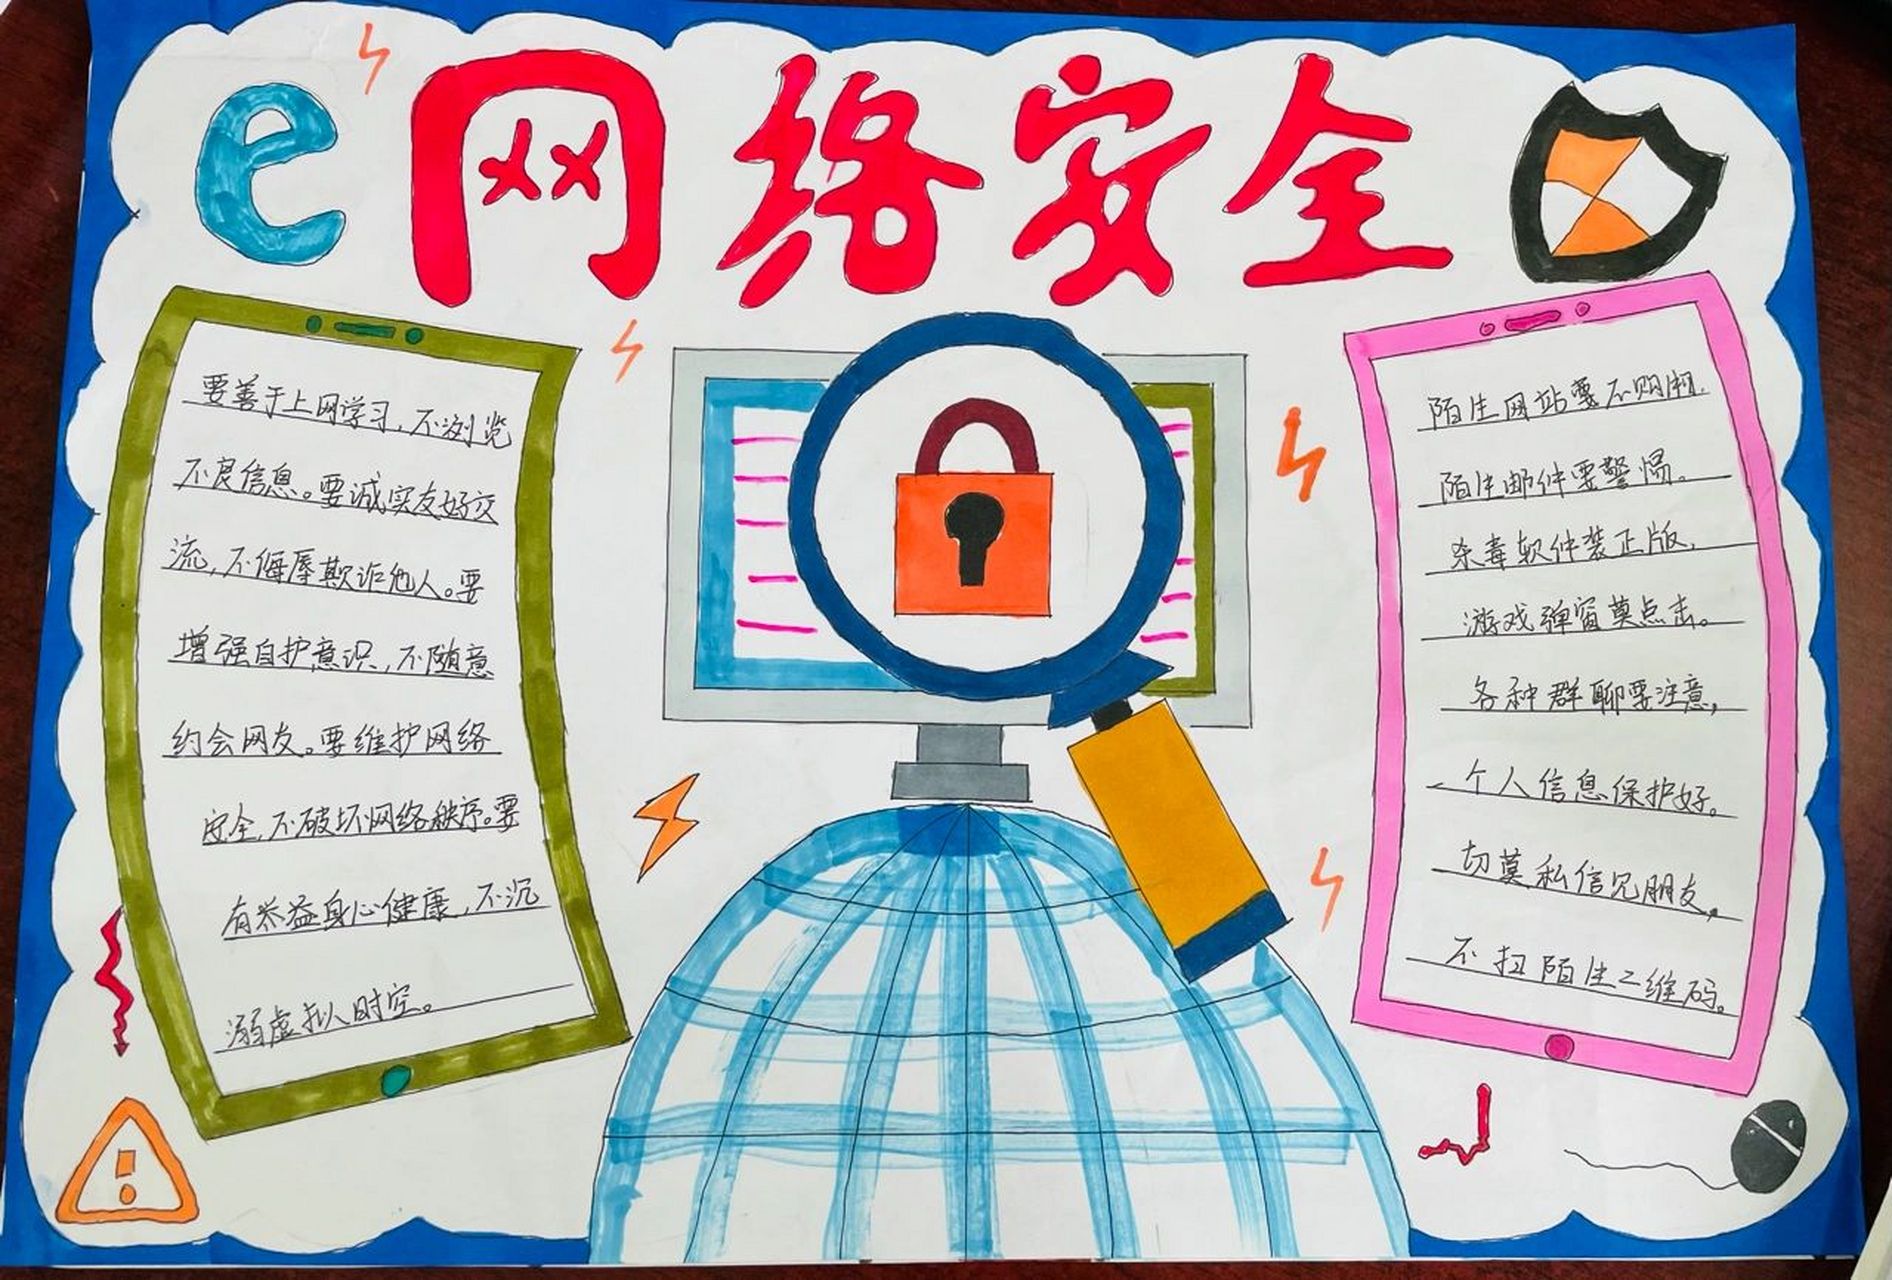 e 网络安全
要善于上网学习,不浏览
不良信息。要诚实友好交
流,不侮辱欺诈他人。要
增强自护意识,不随意
约会网友。要维护网络
安全,不破坏网络秩序。要
有益身心健康,不沉
溺虚拟时空。
陌生网站要不购
陌生邮件要警惕。
杀毒软件装正版,
游戏弹窗莫点击。
各种群聊要注意,
个人信息保护好。
切莫私信见朋友,
不扫陌生二维码。